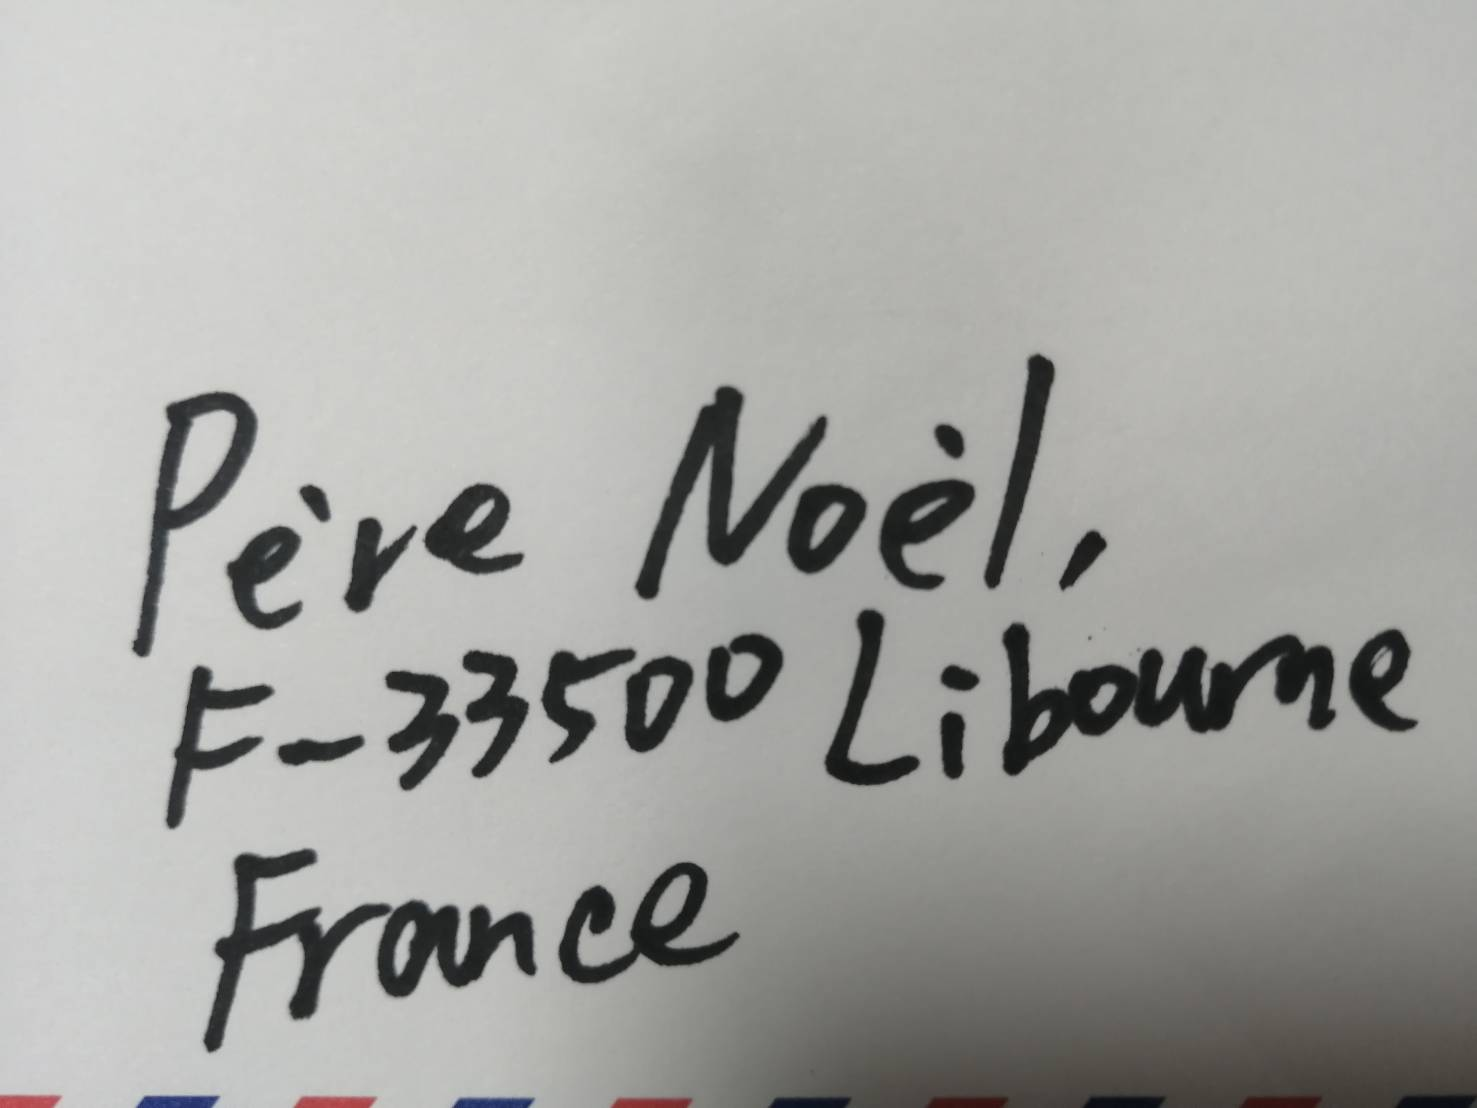 Père Noèl,
F-33500 Libourne
France